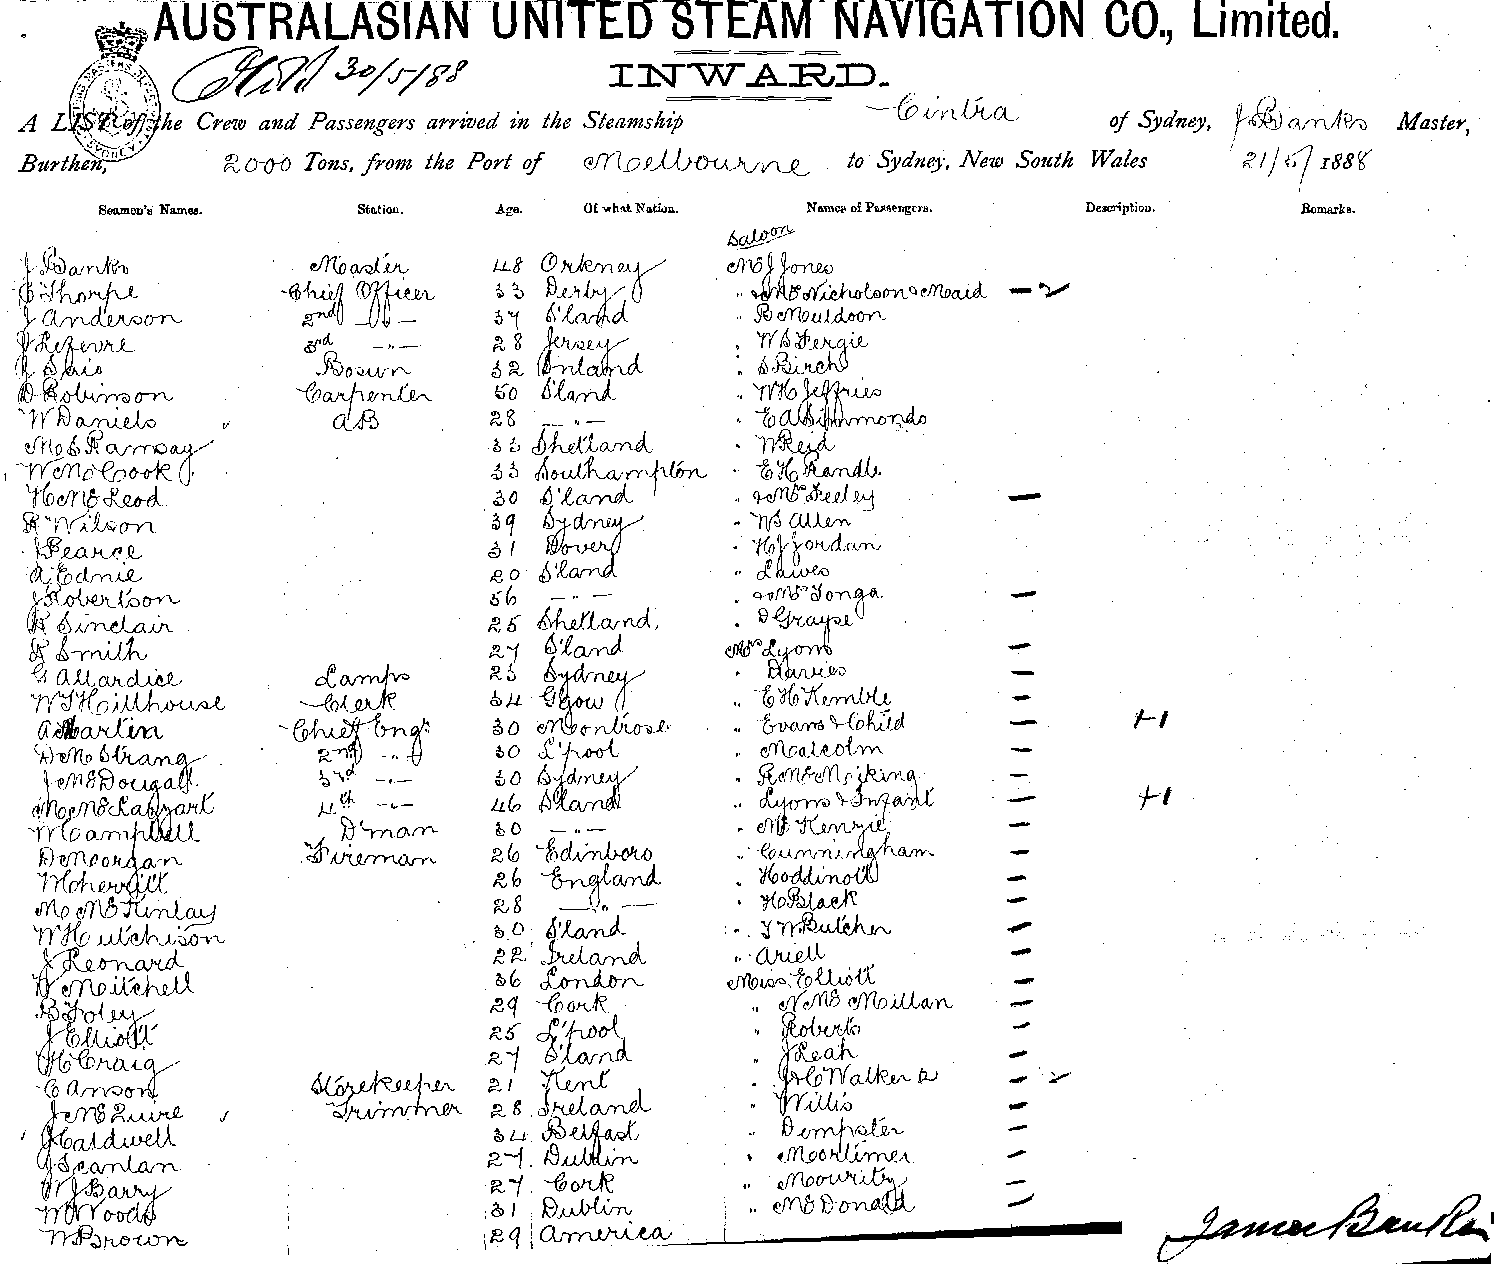 AUSTRALASIAN UNITED STEAM NAVIGATION CO., Limited.
30/5/88
INWARD.
A LIST of the Crew and Passengers arrived in the Steamship Cintra of Sydney, J Banks Master,
Burthen, 2000 Tons, from the Port of Melbourne to Sydney, New South Wales 21/5/1888
Seamen's Names. Station. Age. Of what Nation. Names of Passengers. Description. Remarks.
Saloon
J Banks Master 48 Orkney Mr J Jones
Thorpe Chief Officer 33 Derby " & Mrs Nicholson & Maid
J Anderson 2nd 37 S'land " B Muldoon
J Lefevre 3rd -"- 28 Jersey " W S Fergie
J Bosun 32 " S Birch
D Robinson Carpenter 50 S'land " W H Jeffries
W Daniels AB 28 -"- " E A Simmonds
Ramsay 33 Shetland " W Reid
W McCook 33 Southampton " E H Randle
H McLeod 30 S'land " & Mrs Feeley
R Wilson 39 Sydney " W S Allen
J Pearce 31 Dover " H J Jordan
A Ednie 20 S'land " Lawes
J Robertson 56 -"- " & Mrs Tonga
R Sinclair 25 Shetland " D
R Smith 27 S'land Mrs Lyons
G Allardice Lamps 23 Sydney " Davies
W T Hillhouse Clerk 34 Ggow " E H Kemble
A Martin Chief Engr 30 Montrose " Evans & Child +1
D McStrang 2nd -"- 30 L'pool " Malcolm
J McDougall 3rd -"- 30 Sydney "
4th -"- 46 S'land " Lyons & Infant +1
W Campbell D'man 30 -"- " McKenzie
D Morgan Fireman 26 Edinboro " Cunningham
26 England " Hoddinott
M McKinlay 28 -"- " H Black
W Hutchison 30 S'land " T W Butcher
J Leonard 22 Ireland " Ariell
W Mitchell 36 London Miss Elliott
B Foley 29 Cork " N McMillan
J Elliott 25 L'pool " Roberts
H Craig 27 S'land " J Leah
C Anson Storekeeper 21 Kent " J & C Walker
J McGuire Trimmer 28 Ireland " Willis
J Caldwell 34 Belfast " Dempster
J Scanlan 27 Dublin " Mortimer
W J Barry 27 Cork " Mourity
W Woods 31 Dublin " McDonald
W Brown 29 America
James Banks